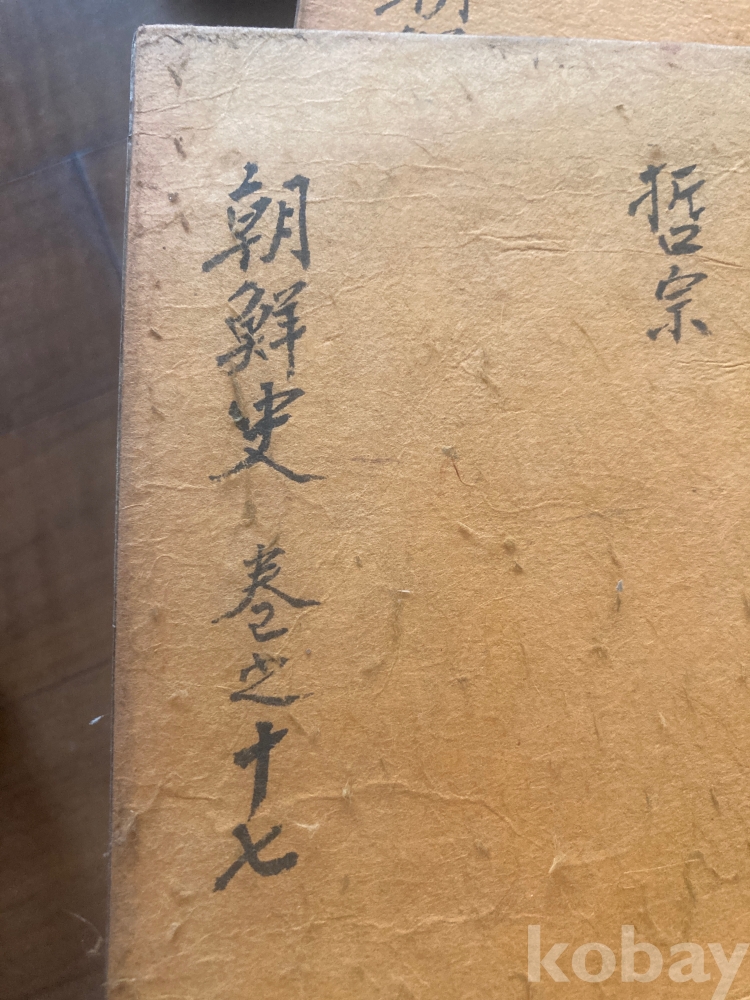 哲宗
朝鮮史 卷之十七
朝
kobay